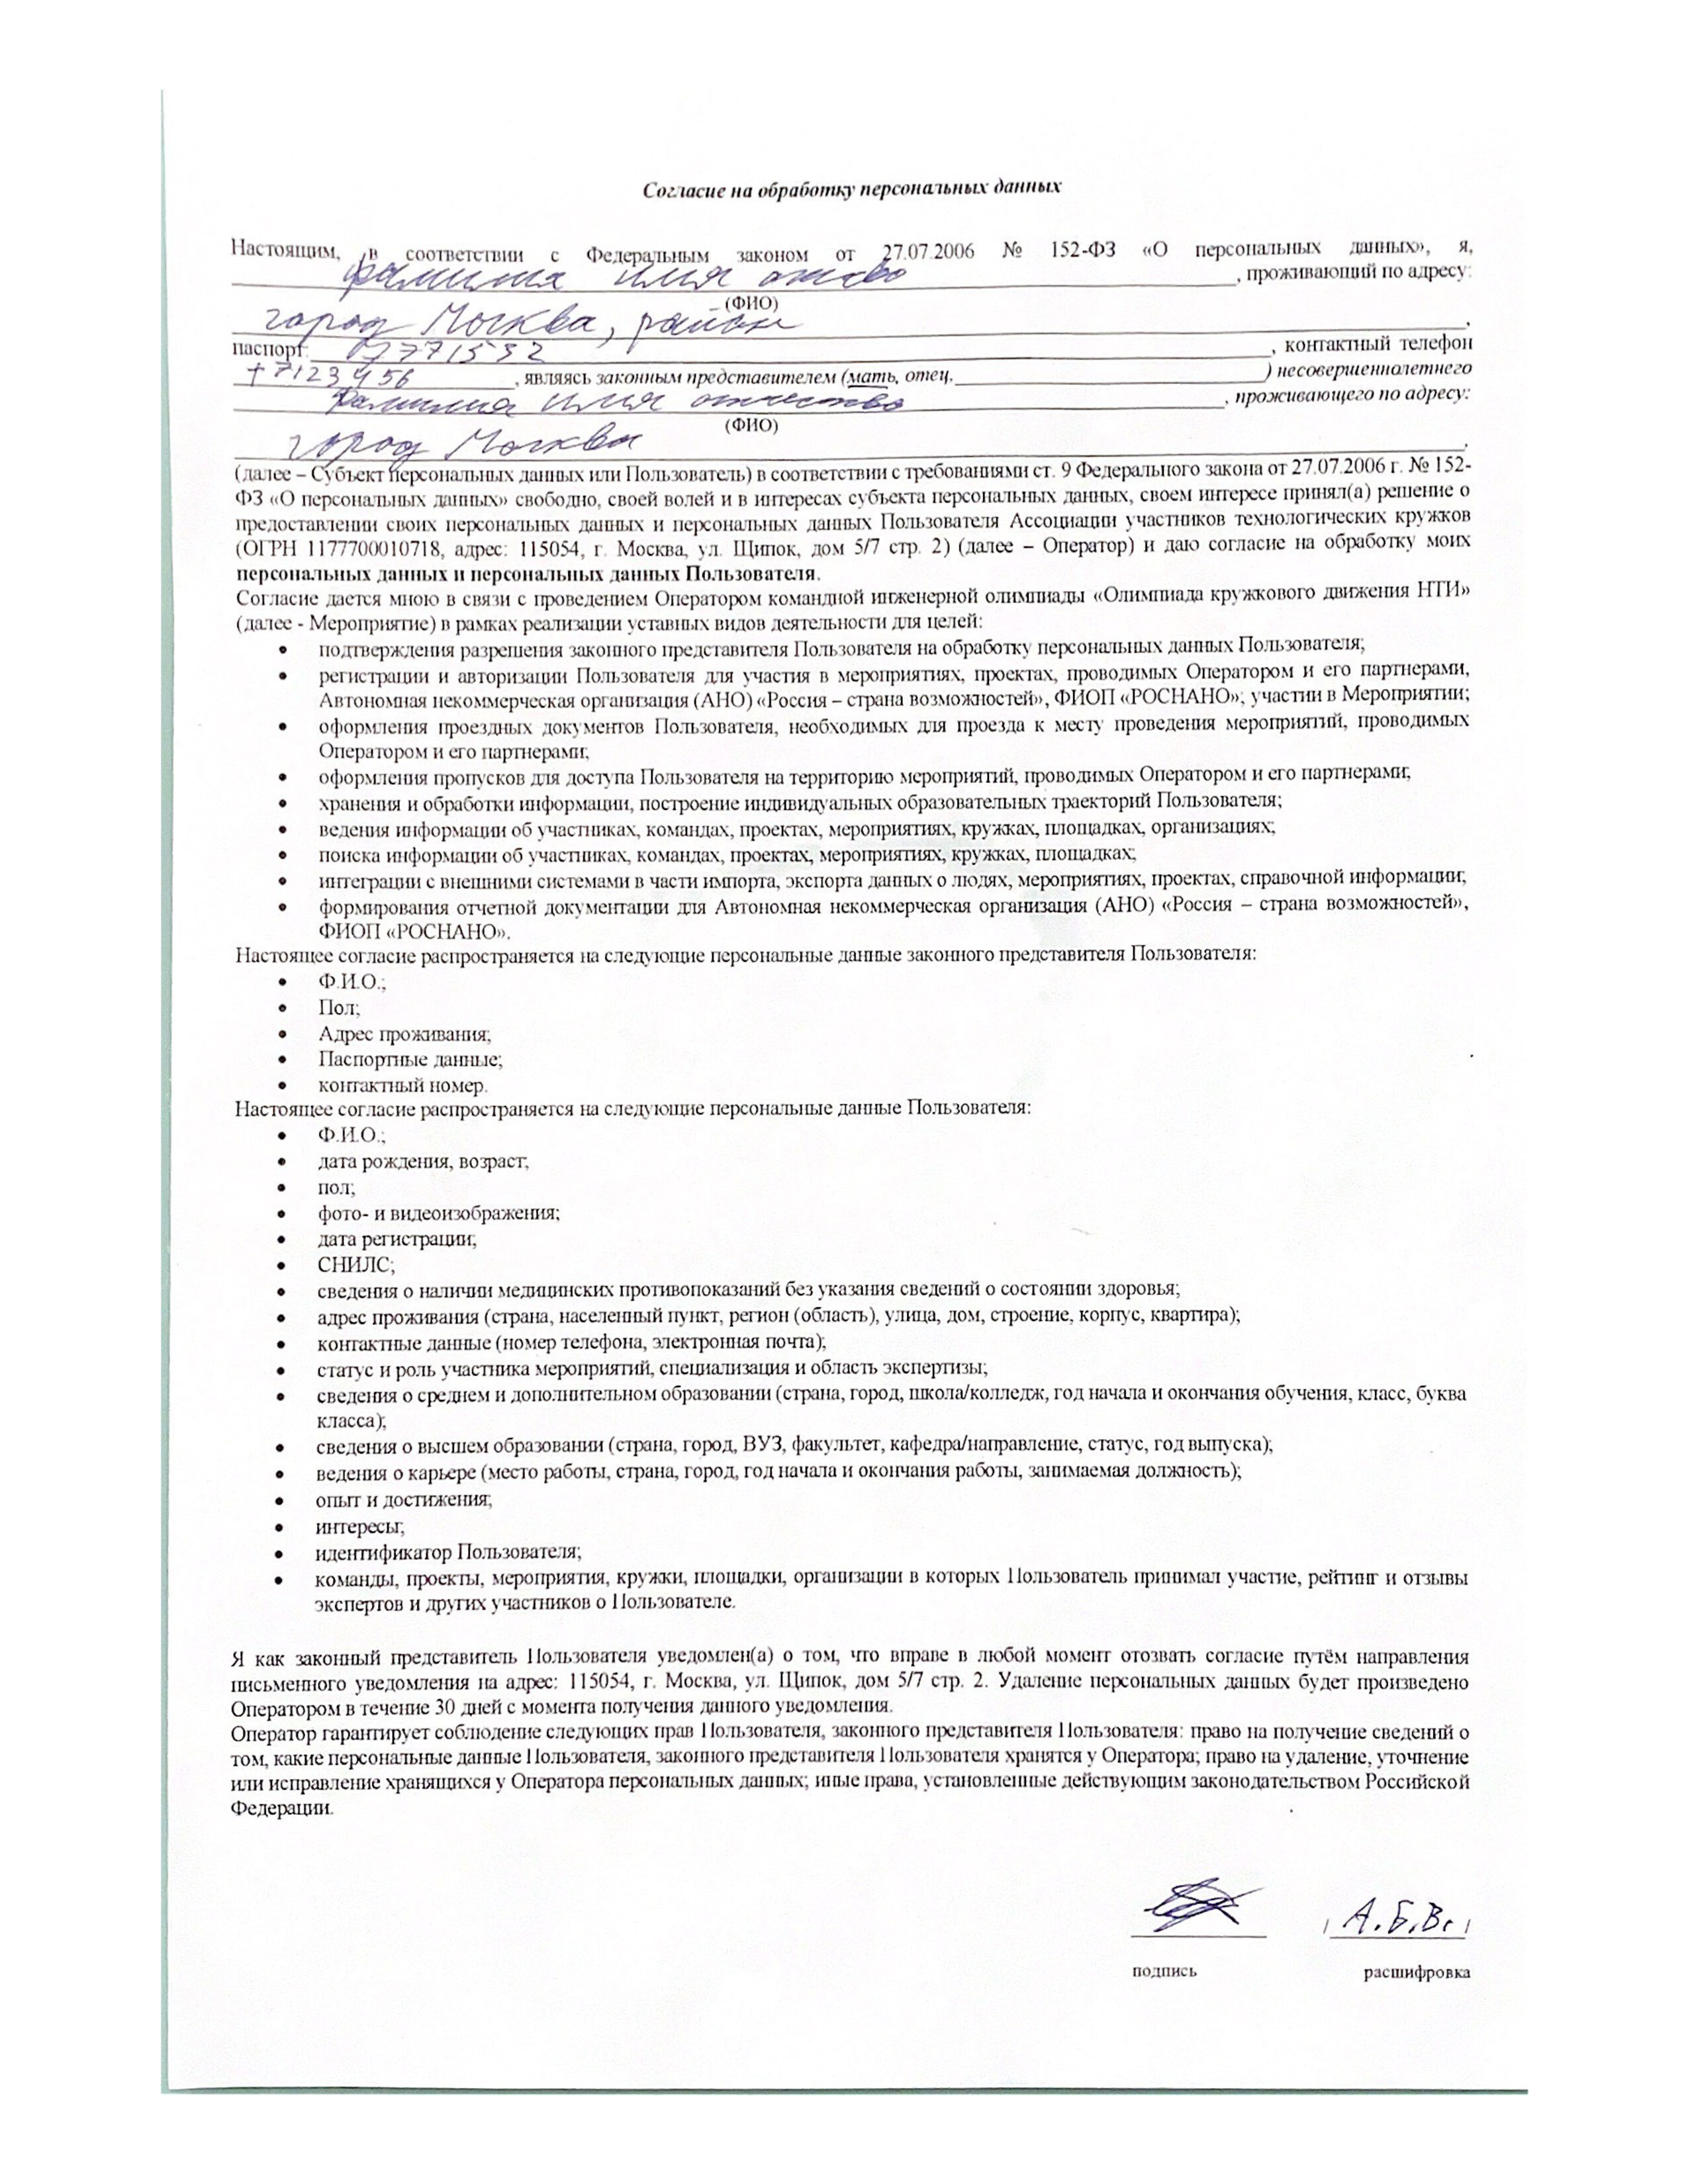 Согласие на обработку персональных данных
Настоящим, в соответствии с Федеральным законом от 27.07.2006 № 152-ФЗ «О персональных данных», я,
фамилия имя , проживающий по адресу:
(ФИО)
город Москва, район ,
паспорт: , контактный телефон
+7123456, являясь законным представителем (мать, отец, ) несовершеннолетнего
фамилия имя отчество, проживающего по адресу:
(ФИО)
город Москва ,
(далее – Субъект персональных данных или Пользователь) в соответствии с требованиями ст. 9 Федерального закона от 27.07.2006 г. № 152-
ФЗ «О персональных данных» свободно, своей волей и в интересах субъекта персональных данных, своем интересе принял(а) решение о
предоставлении своих персональных данных и персональных данных Пользователя Ассоциации участников технологических кружков
(ОГРН 1177700010718, адрес: 115054, г. Москва, ул. Щипок, дом 5/7 стр. 2) (далее – Оператор) и даю согласие на обработку моих
персональных данных и персональных данных Пользователя.
Согласие дается мною в связи с проведением Оператором командной инженерной олимпиады «Олимпиада кружкового движения НТИ»
(далее - Мероприятие) в рамках реализации уставных видов деятельности для целей:
• подтверждения разрешения законного представителя Пользователя на обработку персональных данных Пользователя;
• регистрации и авторизации Пользователя для участия в мероприятиях, проектах, проводимых Оператором и его партнерами,
Автономная некоммерческая организация (АНО) «Россия – страна возможностей», ФИОП «РОСНАНО»; участии в Мероприятии;
• оформления проездных документов Пользователя, необходимых для проезда к месту проведения мероприятий, проводимых
Оператором и его партнерами;
• оформления пропусков для доступа Пользователя на территорию мероприятий, проводимых Оператором и его партнерами;
• хранения и обработки информации, построение индивидуальных образовательных траекторий Пользователя;
• ведения информации об участниках, командах, проектах, мероприятиях, кружках, площадках, организациях;
• поиска информации об участниках, командах, проектах, мероприятиях, кружках, площадках;
• интеграции с внешними системами в части импорта, экспорта данных о людях, мероприятиях, проектах, справочной информации;
• формирования отчетной документации для Автономная некоммерческая организация (АНО) «Россия – страна возможностей»,
ФИОП «РОСНАНО».
Настоящее согласие распространяется на следующие персональные данные законного представителя Пользователя:
• Ф.И.О.;
• Пол;
• Адрес проживания;
• Паспортные данные;
• контактный номер.
Настоящее согласие распространяется на следующие персональные данные Пользователя:
• Ф.И.О.;
• дата рождения, возраст;
• пол;
• фото- и видеоизображения;
• дата регистрации;
• СНИЛС;
• сведения о наличии медицинских противопоказаний без указания сведений о состоянии здоровья;
• адрес проживания (страна, населенный пункт, регион (область), улица, дом, строение, корпус, квартира);
• контактные данные (номер телефона, электронная почта);
• статус и роль участника мероприятий, специализация и область экспертизы;
• сведения о среднем и дополнительном образовании (страна, город, школа/колледж, год начала и окончания обучения, класс, буква
класса);
• сведения о высшем образовании (страна, город, ВУЗ, факультет, кафедра/направление, статус, год выпуска);
• ведения о карьере (место работы, страна, город, год начала и окончания работы, занимаемая должность);
• опыт и достижения;
• интересы;
• идентификатор Пользователя;
• команды, проекты, мероприятия, кружки, площадки, организации в которых Пользователь принимал участие, рейтинг и отзывы
экспертов и других участников о Пользователе.
Я как законный представитель Пользователя уведомлен(а) о том, что вправе в любой момент отозвать согласие путём направления
письменного уведомления на адрес: 115054, г. Москва, ул. Щипок, дом 5/7 стр. 2. Удаление персональных данных будет произведено
Оператором в течение 30 дней с момента получения данного уведомления.
Оператор гарантирует соблюдение следующих прав Пользователя, законного представителя Пользователя: право на получение сведений о
том, какие персональные данные Пользователя, законного представителя Пользователя хранятся у Оператора; право на удаление, уточнение
или исправление хранящихся у Оператора персональных данных; иные права, установленные действующим законодательством Российской
Федерации.
А.Б.В.
подпись расшифровка